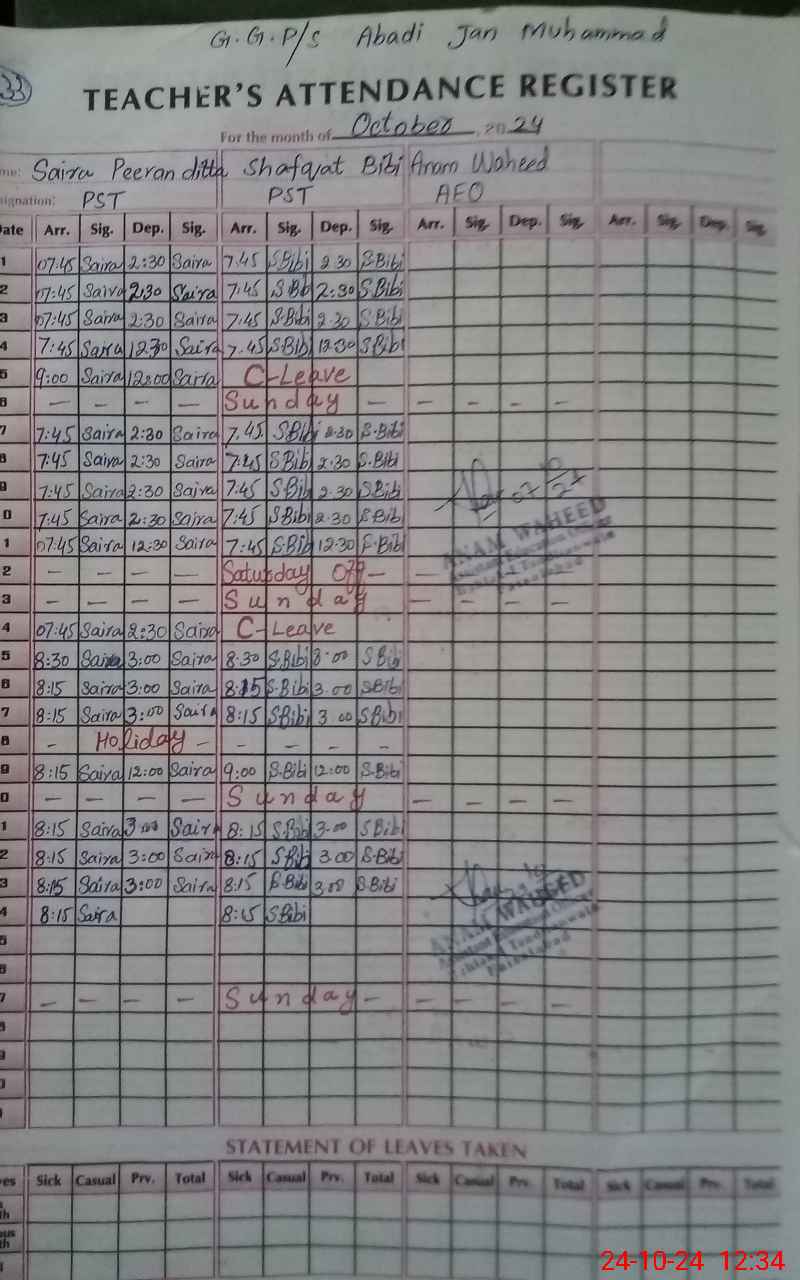 G.G.P/S Abadi Jan Muhammad
33
TEACHER'S ATTENDANCE REGISTER
For the month of October, 2024
me: Saira Peeran ditta Shafqat Bibi Anam Waheed
signation: PST PST AEO
ate Arr. Sig. Dep. Sig. Arr. Sig. Dep. Sig. Arr. Sig. Dep. Sig. Arr. Sig. Dep. Sig.
1 07:45 Saira 2:30 Saira 7.45 S.Bibi 2.30 S.Bibi
2 07:45 Saira 2:30 Saira 7:45 S.Bib 2:30 S.Bibi
3 07:45 Saira 2:30 Saira 7:45 S.Bibi 2.30 S.Bibi
4 7:45 Saira 12:30 Saira 7.45 S.Bibi 12:30 S.Bibi
5 9:00 Saira 12:00 Saira C-Leave
6 — — — — Sunday — — — — —
7 7:45 Saira 2:30 Saira 7.45 S.Bibi 2.30 S.Bibi
8 7:45 Saira 2:30 Saira 7:45 S.Bibi 2.30 S.Bibi
9 7:45 Saira 2:30 Saira 7:45 S.Bib 2.30 S.Bibi
0 7:45 Saira 2:30 Saira 7:45 S.Bibi 2.30 S.Bibi
1 07:45 Saira 12:30 Saira 7:45 S.Bib 12:30 S.Bibi
ANAM WAHEED
Assistant Education Officer
2 — — — — Saturday Off — —
Faisalabad
3 — — — — Sunday — — — —
4 07:45 Saira 2:30 Saira C-Leave
5 8:30 Saira 3:00 Saira 8.30 S.Bibi 3.00 S.Bibi
6 8:15 Saira 3:00 Saira 8:15 S.Bibi 3.00 S.Bibi
7 8:15 Saira 3:00 Saira 8:15 S.Bibi 3.00 S.Bibi
8 — Holiday — — — — —
9 8:15 Saira 12:00 Saira 9:00 S.Bibi 12:00 S.Bibi
0 — — — — Sunday — — — —
1 8:15 Saira 3:00 Saira 8:15 S.Bibi 3.00 S.Bibi
2 8:15 Saira 3:00 Saira 8:15 S.Bibi 3.00 S.Bibi
3 8:15 Saira 3:00 Saira 8:15 S.Bibi 3.00 S.Bibi
ANAM WAHEED
4 8:15 Saira 8:15 S.Bibi
Assistant Education Officer
5
Faisalabad
6
7 — — — — Sunday — — — — —
8
9
0
STATEMENT OF LEAVES TAKEN
es Sick Casual Prv. Total Sick Casual Prv. Total Sick Casual Prv. Total Sick Casual Prv. Total
th
ous
th
24-10-24 12:34